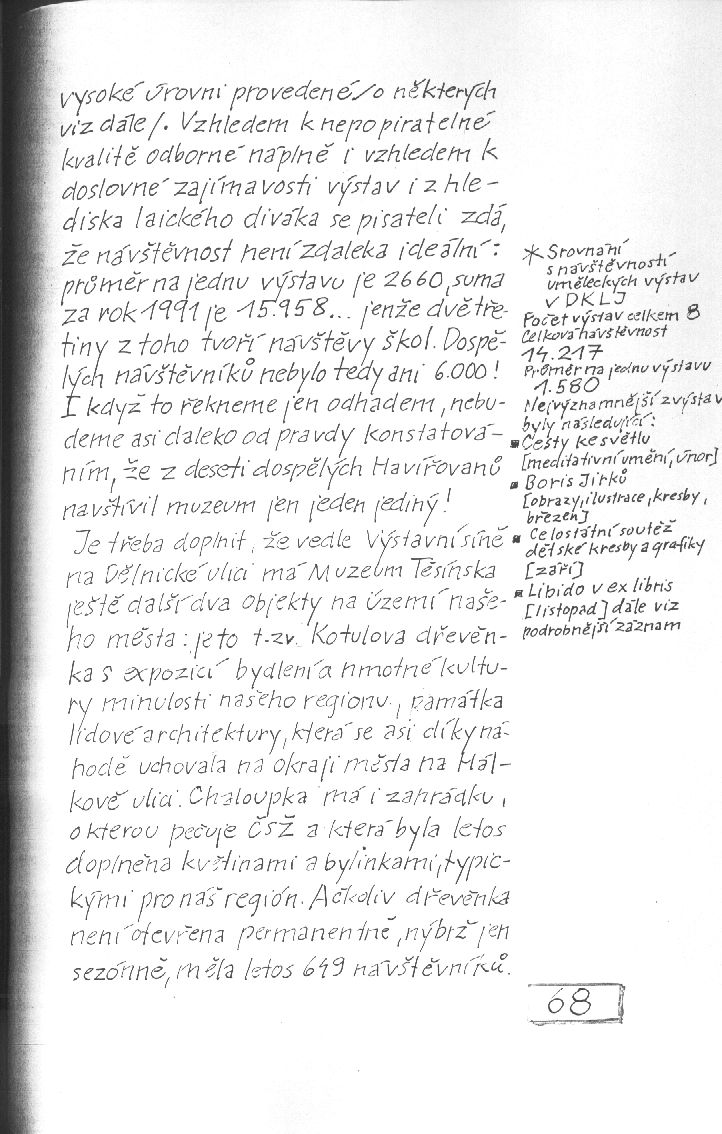 vysoké úrovni provedené/o některých
viz dále/. Vzhledem k nepopiratelné
kvalitě odborné náplně i vzhledem k
doslovné zajímavosti výstav i z hle-
diska laického diváka se pisateli zdá,
že návštěvnost není zdaleka ideální:
průměr na jednu výstavu je 2660, suma
za rok 1991 je 15.958... jenže dvě tře-
tiny z toho tvoří návštěvy škol. Dospě-
lých návštěvníků nebylo tedy ani 6.000!
I když to řekneme jen odhadem, nebu-
deme asi daleko od pravdy konstatová-
ním, že z deseti dospělých Havířovanů
navštívil muzeum jen jeden jediný!
Je třeba doplnit, že vedle Výstavní síně
na Dělnické ulici má Muzeum Těšínska
ještě další dva objekty na území naše-
ho města: je to t.zv. Kotulova dřevěn-
ka s expozicí bydlení a hmotné kultu-
ry minulosti našeho regionu, památka
lidové architektury, která se asi díky ná-
hodě uchovala na okraji města na Hál-
kově ulici. Chaloupka má i zahrádku,
o kterou pečuje ČSŽ a která byla letos
doplněna květinami a bylinkami, typic-
kými pro náš región. Ačkoliv dřevěnka
není otevřena permanentně, nýbrž jen
sezónně, měla letos 649 návštěvníků.
* Srovnání
s návštěvností
uměleckých výstav
v DKLJ
Počet výstav celkem 8
Celková návštěvnost
14.217
Průměr na jednu výstavu
1.580
Nejvýznamnější z výstav
byly následující:
▪ Cesty ke světlu
[meditativní umění, únor]
▪ Boris Jirků
[obrazy, ilustrace, kresby,
březen]
▪ Celostátní soutěž
dětské kresby a grafiky
[září]
▪ Libido v ex libris
[listopad] dále viz
podrobnější záznam
68